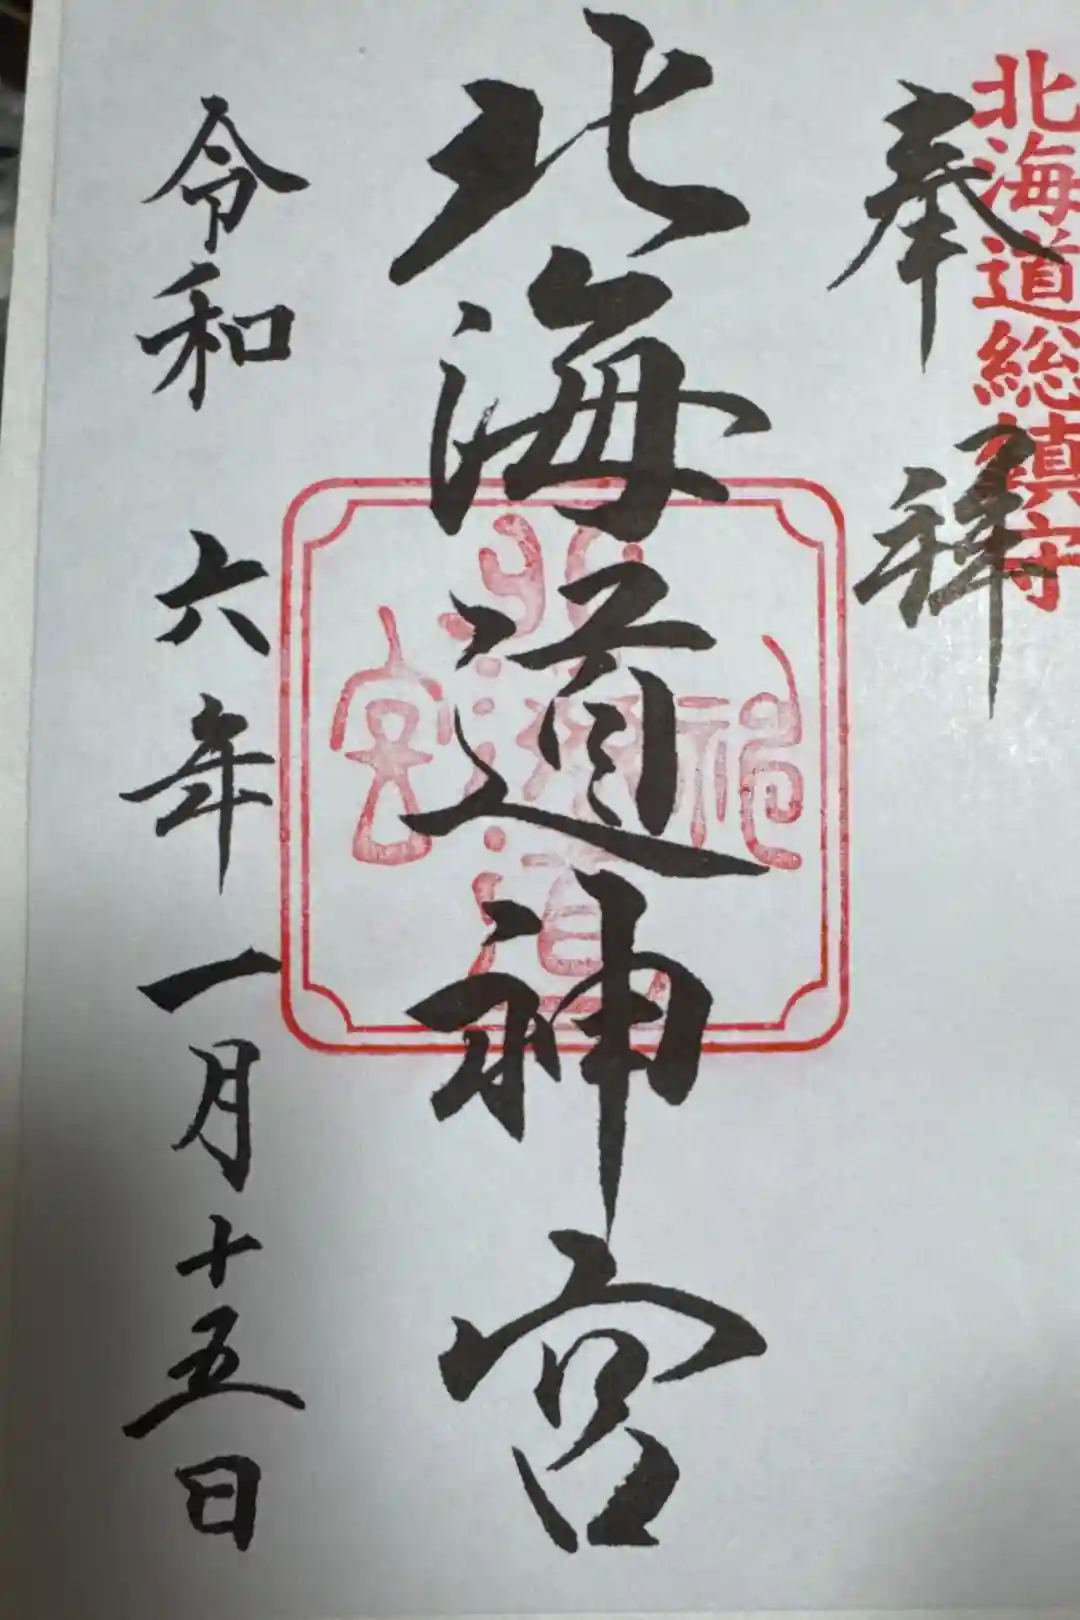 北海道総鎮守
奉拝
北海道神宮
北海道神宮
令和六年一月十五日